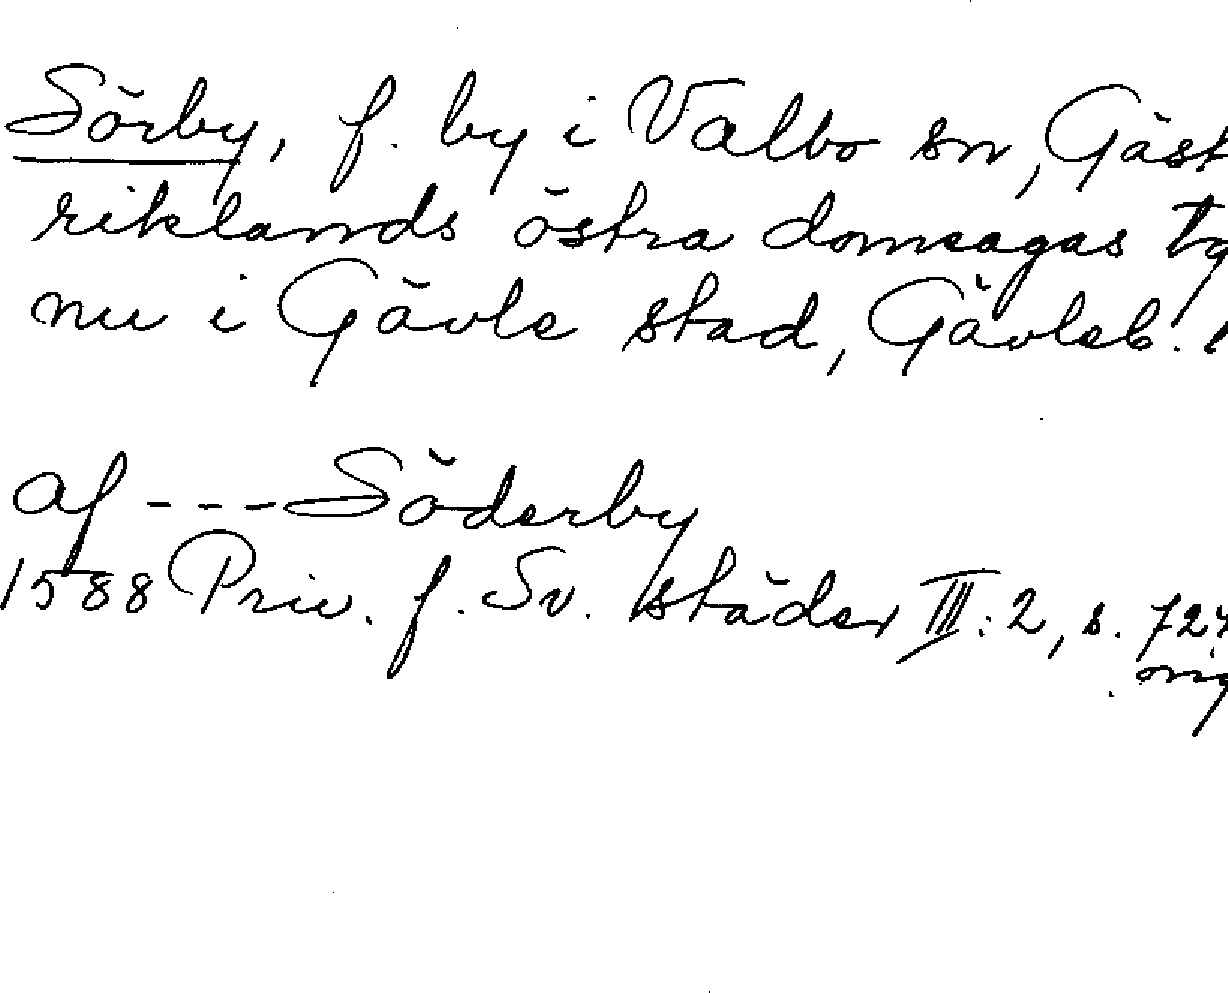 Sörby, f. by i Valbo sn, Gäst
riklands östra domsagas tg
nu i Gävle stad, Gävleb.
af --- Söderby
1588 Priv. f. Sv. städer III:2, s. 727